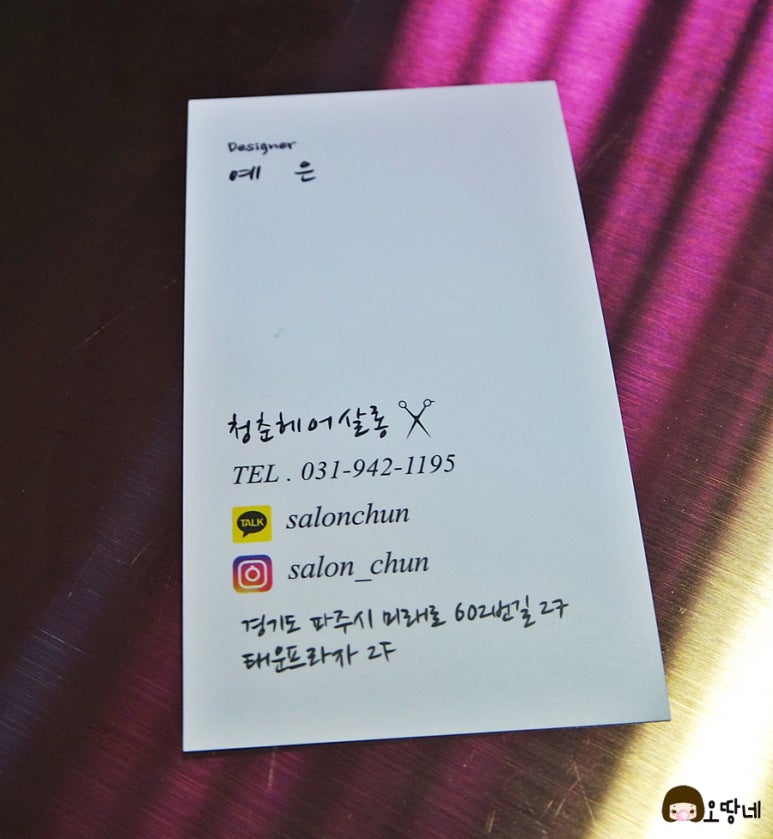 Designer
예 은
청춘헤어살롱
TEL . 031-942-1195
TALK salonchun
salon_chun
경기도 파주시 미래로 602번길 27
태운프라자 2F
오땅네